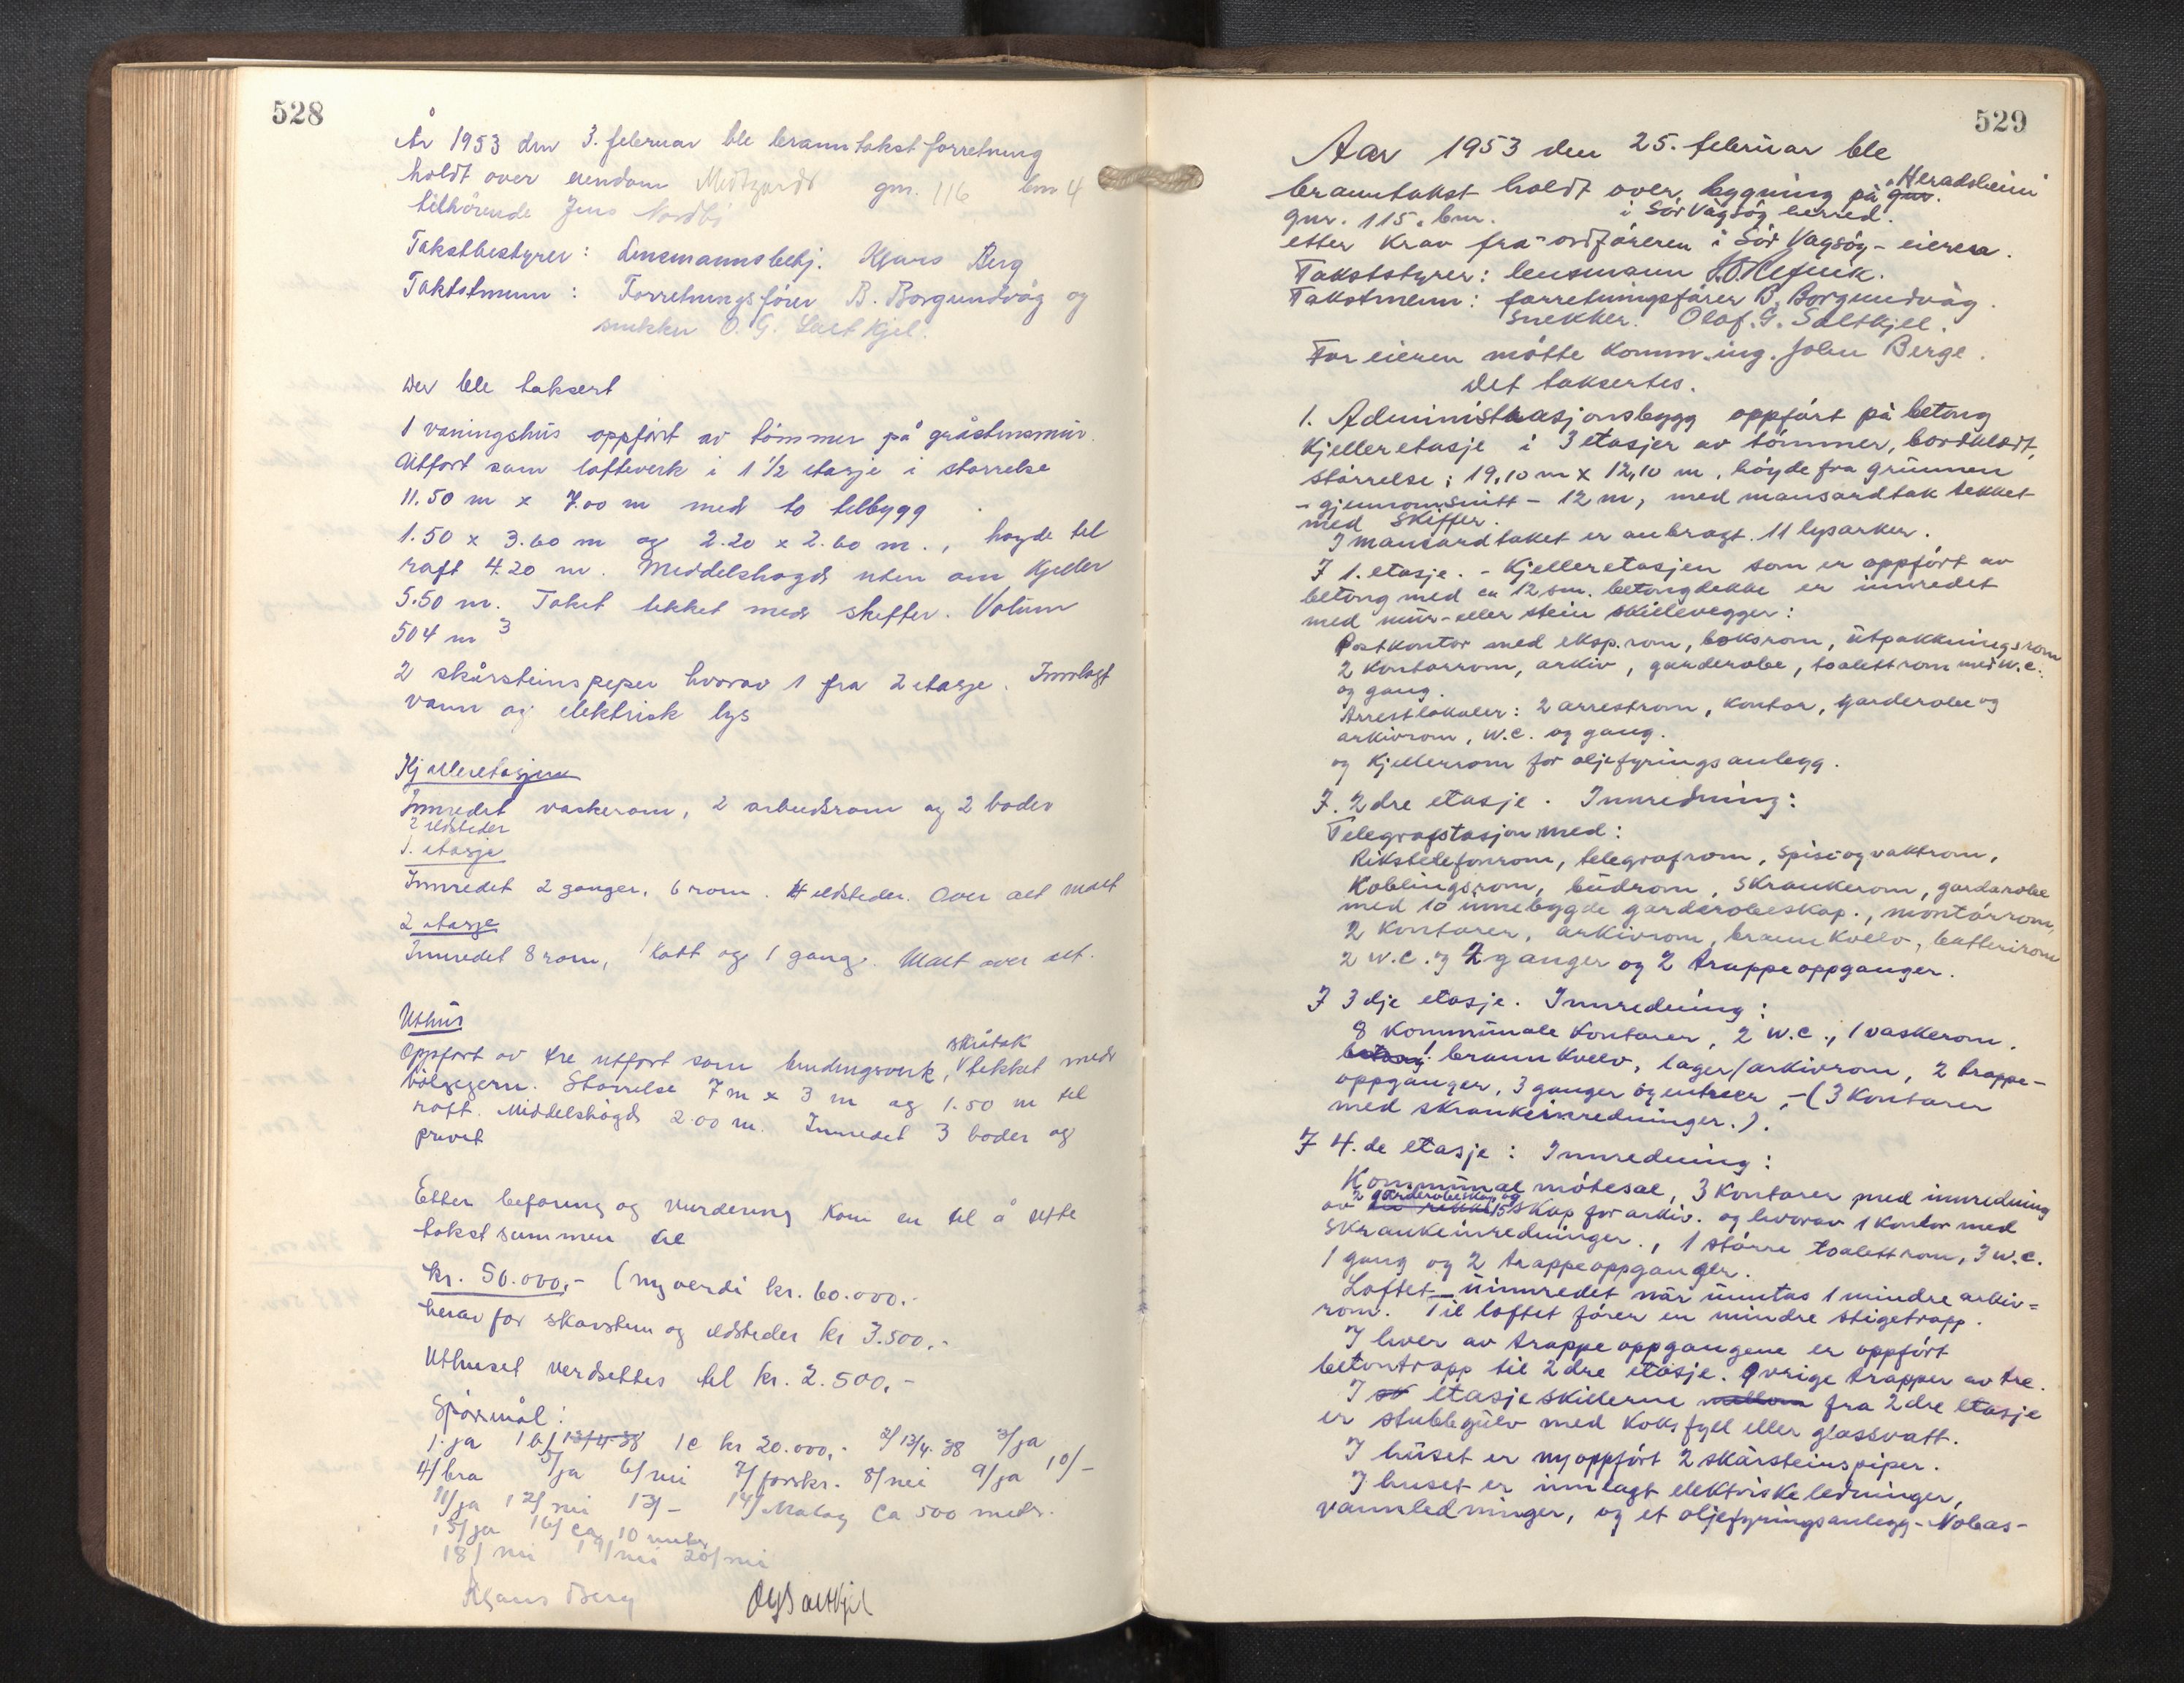 528
År 1953 den 3. februar ble branntakst forretning
holdt over eiendom Midtgard gnr. 116 bnr 4
tilhörende Jens Nordbö
Takstbestyrer: Lensmannsbetj. Klaus Berg
Takstmenn: Forretningsförer B. Borgundvåg og
snekker O. G. Saltkjel.
Der ble taksert
1 våningshus oppfört av tömmer på gråstensmur.
Utfört som lafteverk i 1 1/2 etasje i störrelse
11.50 m x 7.00 m med to tilbygg
1.50 x 3.60 m og 2.20 x 2.60 m., höyde til
raft 4.20 m. Middelshögd uten om kjeller
5.50 m. Taket tekket med skiffer. Volum
504 m3
2 skårsteinspeper hvorav 1 fra 2 etasje. Innlagt
vann og elektrisk lys
Kjelleretasjen
Innredet vaskerom, 2 arbeidsrom og 2 boder
2 ildsteder
1. etasje
Innredet 2 ganger, 6 rom. 4 ildsteder. Over alt malt
2 etasje
Innredet 8 rom, 1 kott og 1 gang. Malt over alt.
Uthus
skråtak
Oppfört av tre utfört som bindingsverk, tekket med
bölgejern. Störrelse 7 m x 3 m og 1.50 m til
raft. Middelshögd 2.00 m. Innredet 3 boder og
privet
Etter befaring og vurdering kom en til å sette
takst summen til
kr. 50.000,- (ny verdi kr. 60.000.-
herav for skorsten og ildsteder kr 3.500,-
Uthuset verdsettes til kr. 2.500,-
Spörsmål:
1. ja 1b/ 13/4-38 1c kr 20.000,- 2/ 13/4.38 3/ja
4/ bra 5/ja 6/nei 7/ forskr. 8/nei 9/ja 10/-
11/ja 12/ nei 13/- 14/ Måløy ca 500 metr.
15/ja 16/ ca 10 meter
18/ nei 19/nei 20/nei
Klaus Berg OGSaltkjel
529
Aar 1953 den 25. februar ble
branntakst holdt over bygning på gnr. "Heradsheim"
gnr. 115. bnr. i Sör Vågsöy herred.
etter krav fra ordföreren i Sör Vagsöy - eieren.
Takststyrer: lensmann
Takstmenn: forretningsförer B. Borgundvåg.
snekker. Olaf. G. Saltkjel.
For eieren mötte komm.ing. John Berge.
Det taksertes.
1. Administrasjonsbygg oppfört på betong
kjelleretasje i 3 etasjer av tömmer, bordklædt,
störrelse: 19,10 m x 12,10 m, höyde fra grunnen
- gjennomsnitt - 12 m, med mansardtak tekket
med skiffer.
I mansardtaket er anbragt 11 lysarker.
I 1. etasje. - kjelleretasjen som er oppfört av
betong med ca 12 sm. betongdekke er innredet
med mur- eller stein skillevegger:
Postkontor med eksp.rom, boksrom, utpakkningsrom
2 kontorrom, arkiv, garderobe, toalettrom med w.c.
og gang.
Arrestlokaler: 2 arrestrom, kontor, garderobe og
arkivrom, w.c. og gang.
og kjellerrom for oljefyringsanlegg.
I. 2dre etasje. Innredning:
Telegrafstasjon med:
Rikstelefonrom, telegrafrom, spise og vaktrom,
koblingsrom, budrom, skrankerom, gardarobe
med 10 innebygde garderobeskap., montörrom,
2 kontorer, arkivrom, brannkvelv, batterirom
2 w.c. og 2 ganger og 2 trappeoppganger.
I 3dje etasje. Innredning:
8 kommunale kontorer, 2 w.c., 1 vaskerom.
betong 1 brannkvelv, lager/arkivrom, 2 trappe-
oppganger, 3 ganger og entreer, - (3 kontorer
med skrankeinredninger.).
I 4.de etasje: Innredning:
Kommunal mötesal, 3 kontorer med innredning
2 garderobeskap og
av en rekke 15 skap for arkiv. og hvorav 1 kontor med
skrankeinredninger., 1 större toalettrom, 3 w.c.
1 gang og 2 trappeoppganger.
Loftet uinnredet når unntas 1 mindre arkiv=
rom. Til loftet förer en mindre stigetrapp.
I hver av trappeoppgangene er oppfört
betontrapp til 2dre etasje. Övrige trapper av tre.
I etasjeskillerne mellom fra 2dre etasje
er stubbgulv med koksfyll eller glassvatt.
I huset er nyoppfört 2 skårsteinspiper.
I huset er innlagt elektriske ledninger,
vannledninger, og et oljefyringsanlegg - Nobas-